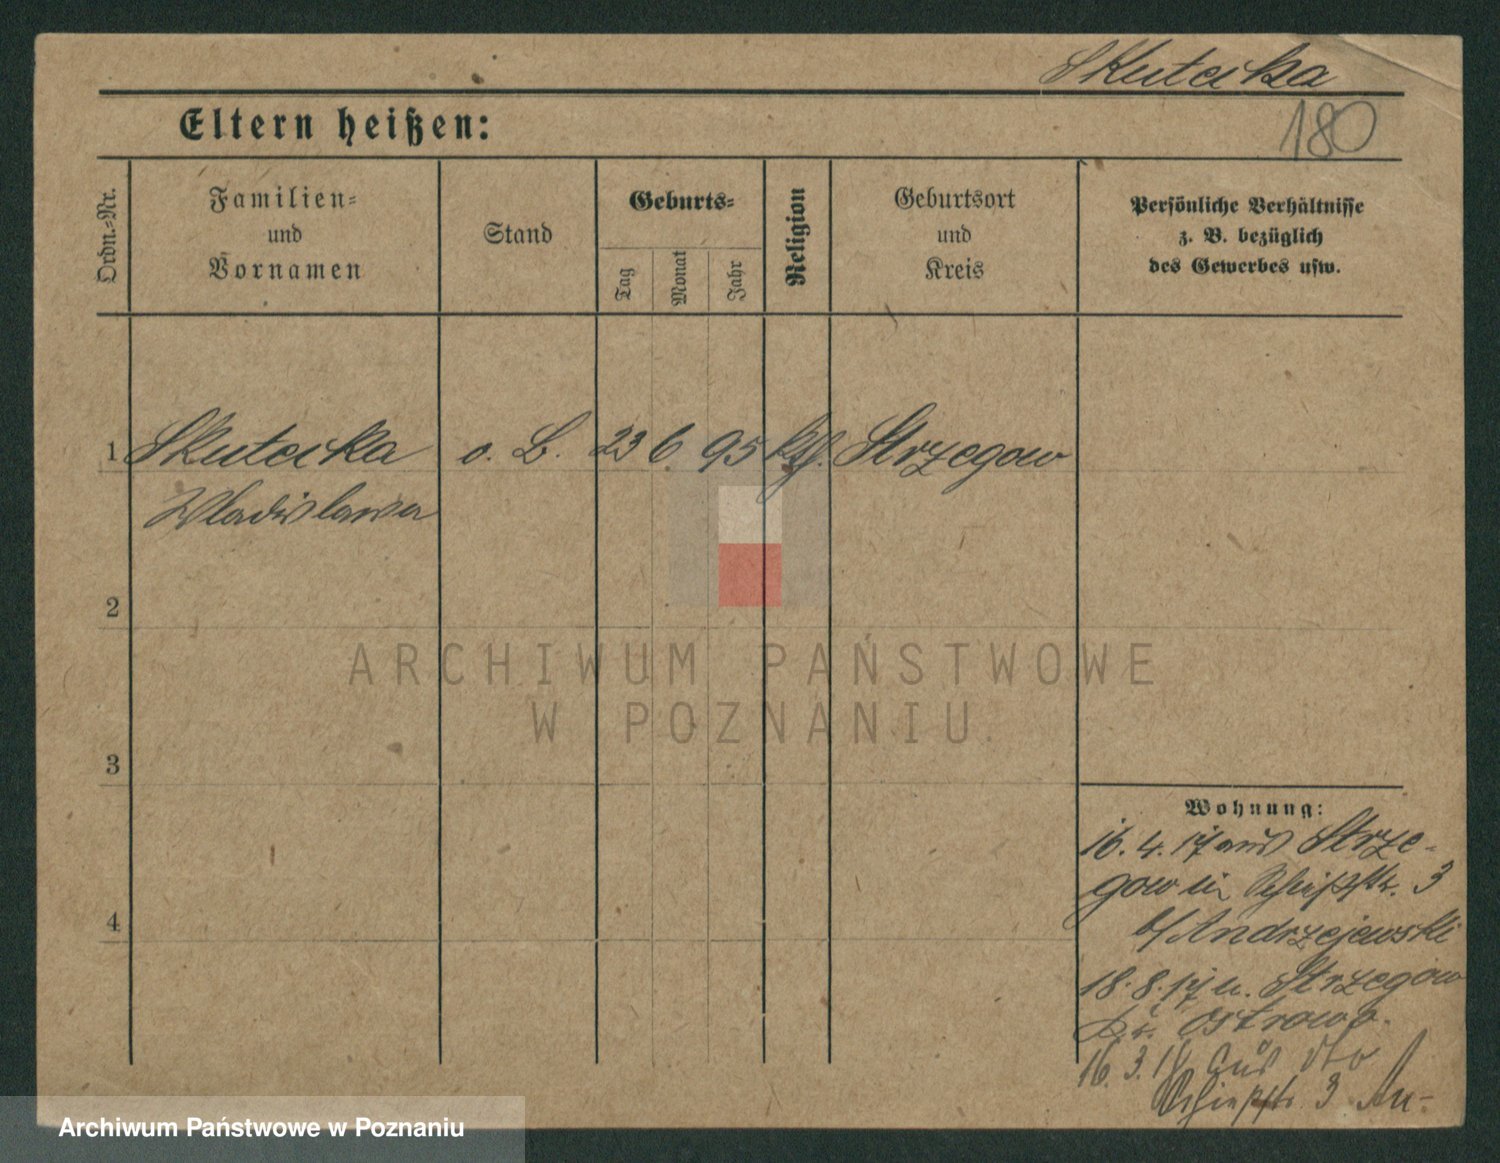 Skutecka
Eltern heißen:
180
Ordn.-Nr.
Familien-
und
Vornamen
Stand
Geburts-
Tag
Monat
Jahr
Religion
Geburtsort
und
Kreis
Persönliche Verhältnisse
z. B. bezüglich
des Gewerbes usw.
1 Skutecka o. B. 23 6 95 kth. Strzegow
Wladislawa
2
3
4
Wohnung:
16. 4. 17 aus Strze-
gow in 3
b/ Andrzejewski
18. 8. 17 n. Strzegow
Kr. Ostrowo.
16. 3. 18 aus dto
3 An-
ARCHIWUM PAŃSTWOWE
W POZNANIU
Archiwum Państwowe w Poznaniu